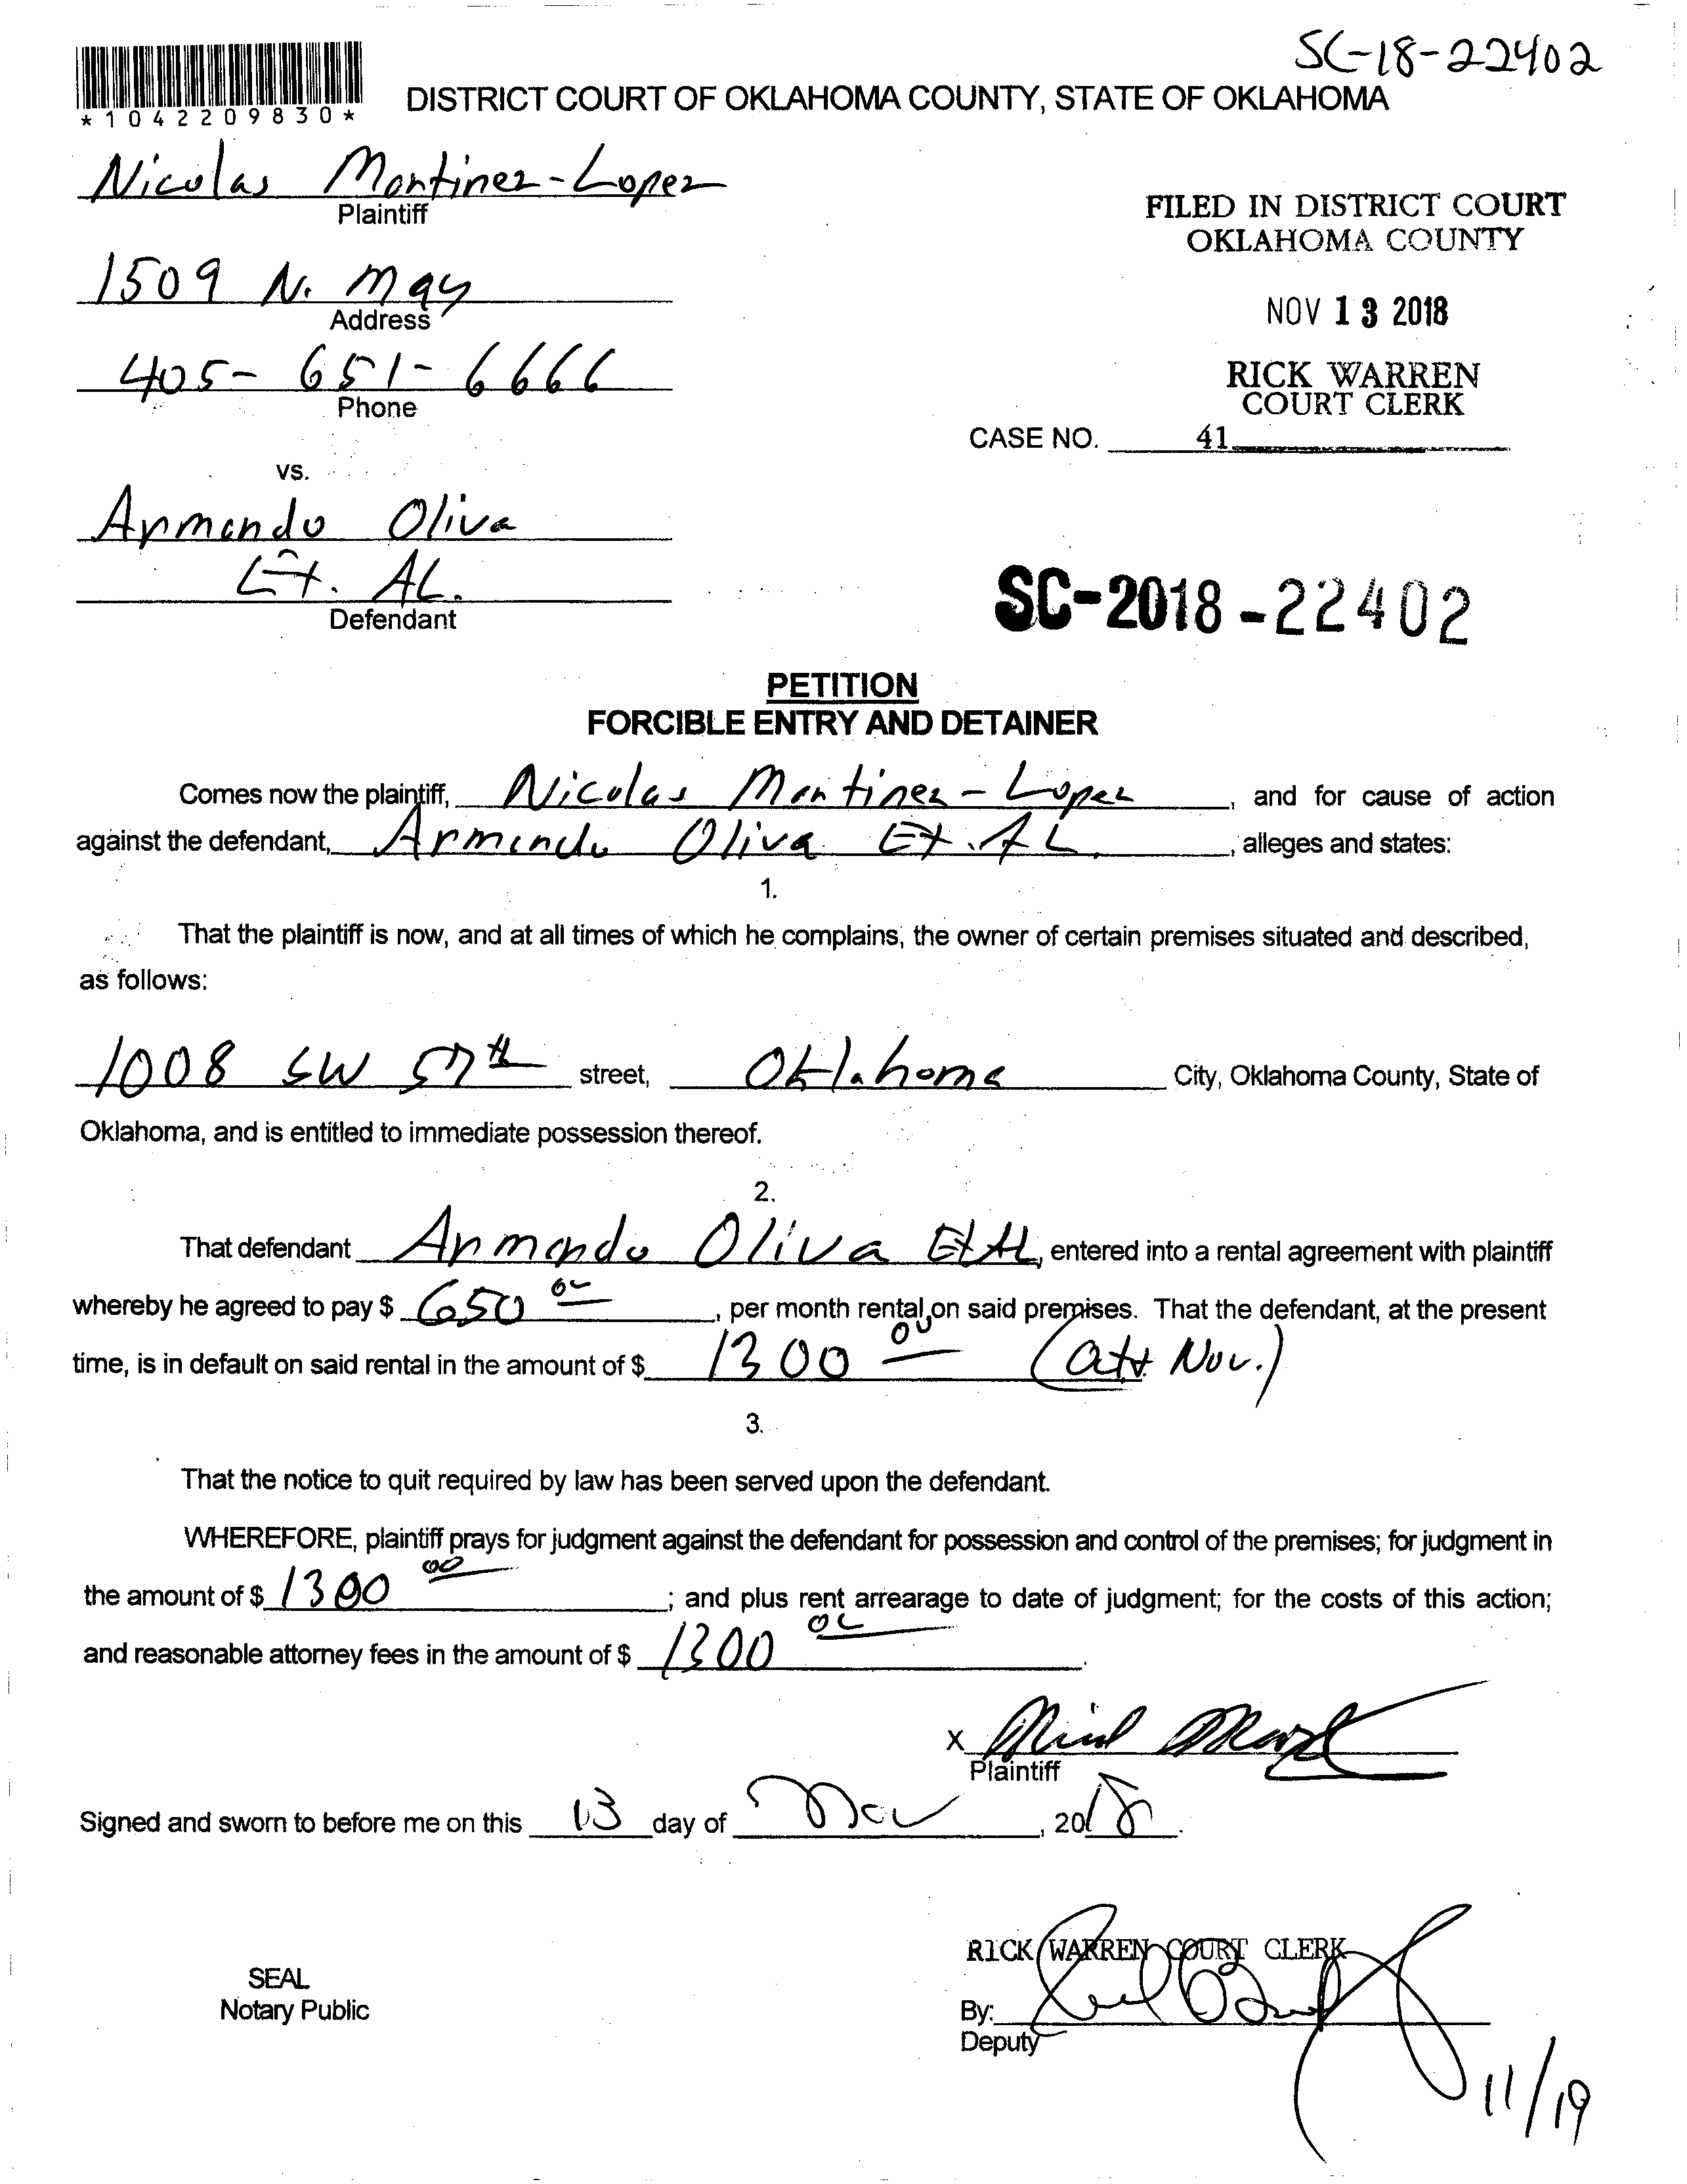 SC-18-22402
*1042209830*
DISTRICT COURT OF OKLAHOMA COUNTY, STATE OF OKLAHOMA
Nicolas Martinez-Lopez
Plaintiff
FILED IN DISTRICT COURT
OKLAHOMA COUNTY
1509 N. May
Address
NOV 13 2018
405-651-6666
Phone
RICK WARREN
COURT CLERK
CASE NO. 41
vs.
Armando Oliva
Et. AL.
Defendant
SC-2018-22402
PETITION
FORCIBLE ENTRY AND DETAINER
Comes now the plaintiff, Nicolas Martinez-Lopez, and for cause of action
against the defendant, Armando Oliva Et. AL., alleges and states:
1.
That the plaintiff is now, and at all times of which he complains, the owner of certain premises situated and described,
as follows:
1008 SW 57th street, Oklahoma City, Oklahoma County, State of
Oklahoma, and is entitled to immediate possession thereof.
2.
That defendant Armando Oliva Et AL, entered into a rental agreement with plaintiff
whereby he agreed to pay $ 650 00, per month rental on said premises. That the defendant, at the present
time, is in default on said rental in the amount of $ 1300 00 ( Nov.)
3.
That the notice to quit required by law has been served upon the defendant.
WHEREFORE, plaintiff prays for judgment against the defendant for possession and control of the premises; for judgment in
the amount of $ 1300 00; and plus rent arrearage to date of judgment; for the costs of this action;
and reasonable attorney fees in the amount of $ 1300 00.
X
Plaintiff
Signed and sworn to before me on this 13 day of Nov, 2018.
RICK WARREN COURT CLERK
SEAL
Notary Public
By:
Deputy
11/19